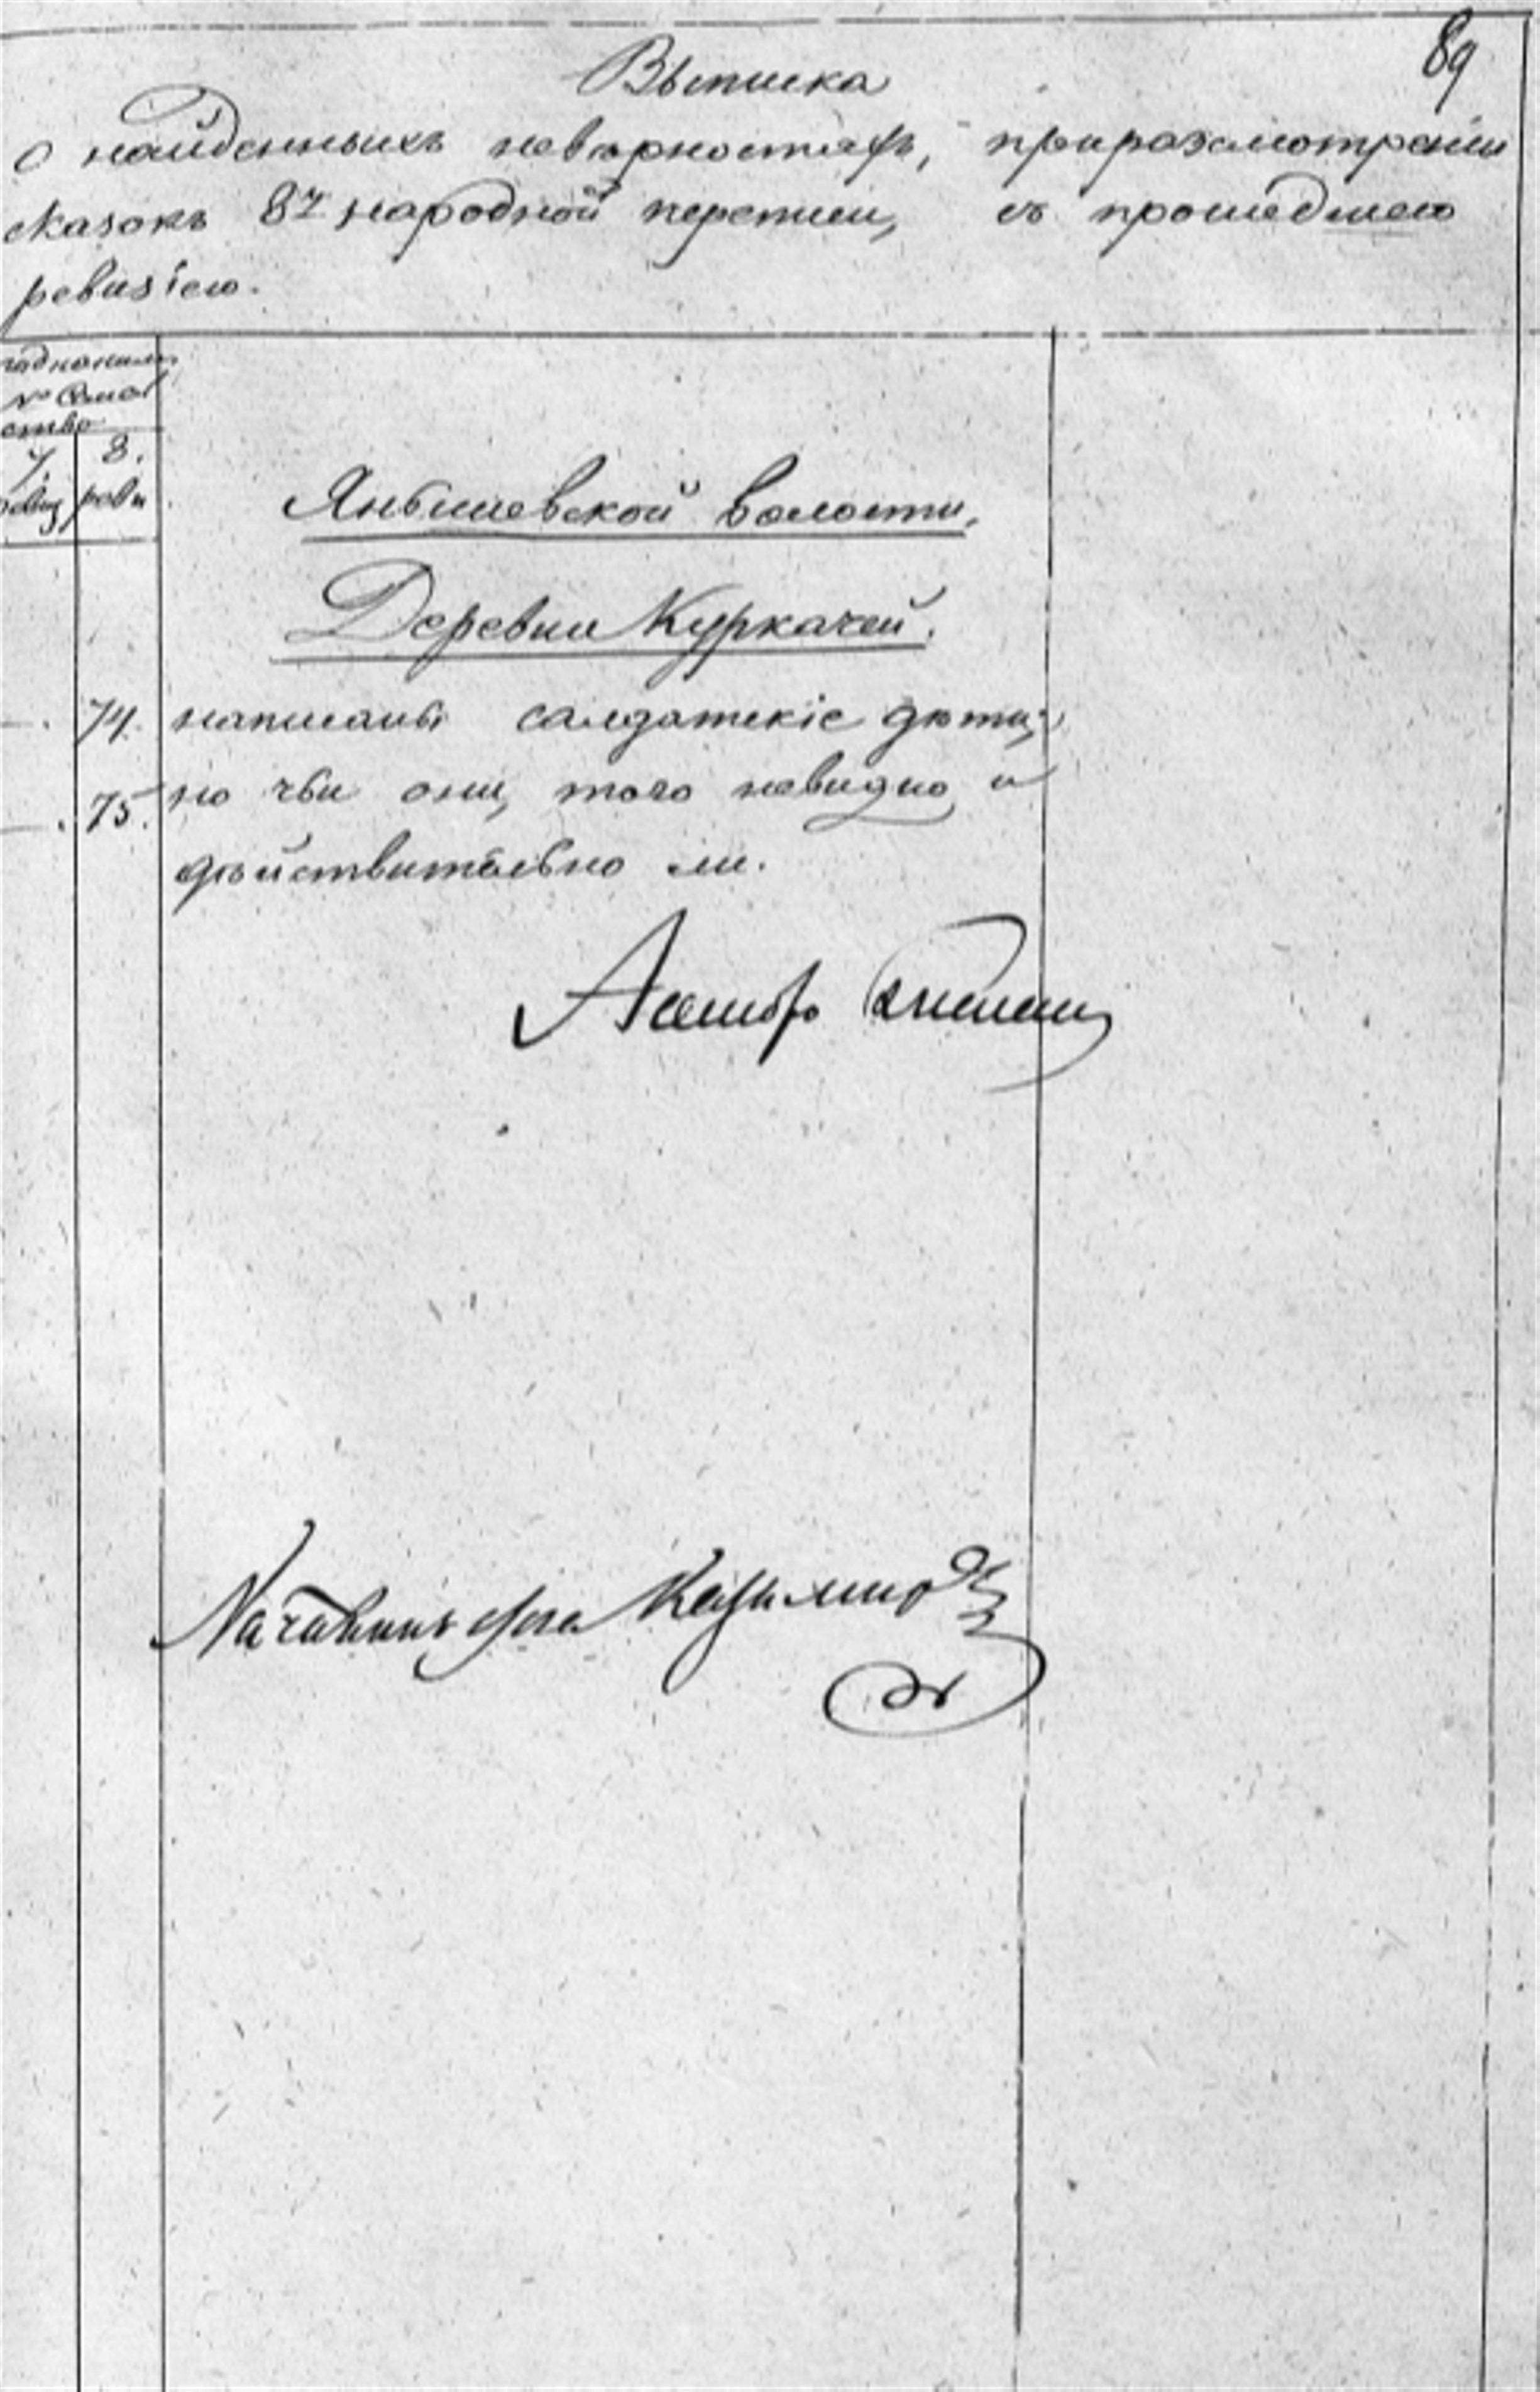 89
Выписка
о найденныхъ неверностяхъ, приразсмотрѣніи
сказокъ 8й народной переписи, съ прошедшею
ревизіею.
№ Семей
ство
7. 8.
реви
Янбышевской волости,
Деревни Куркачей.
74. написаны салдатскіе дѣти;
75. но чьи они, того невидно и
дѣйствительно ли.